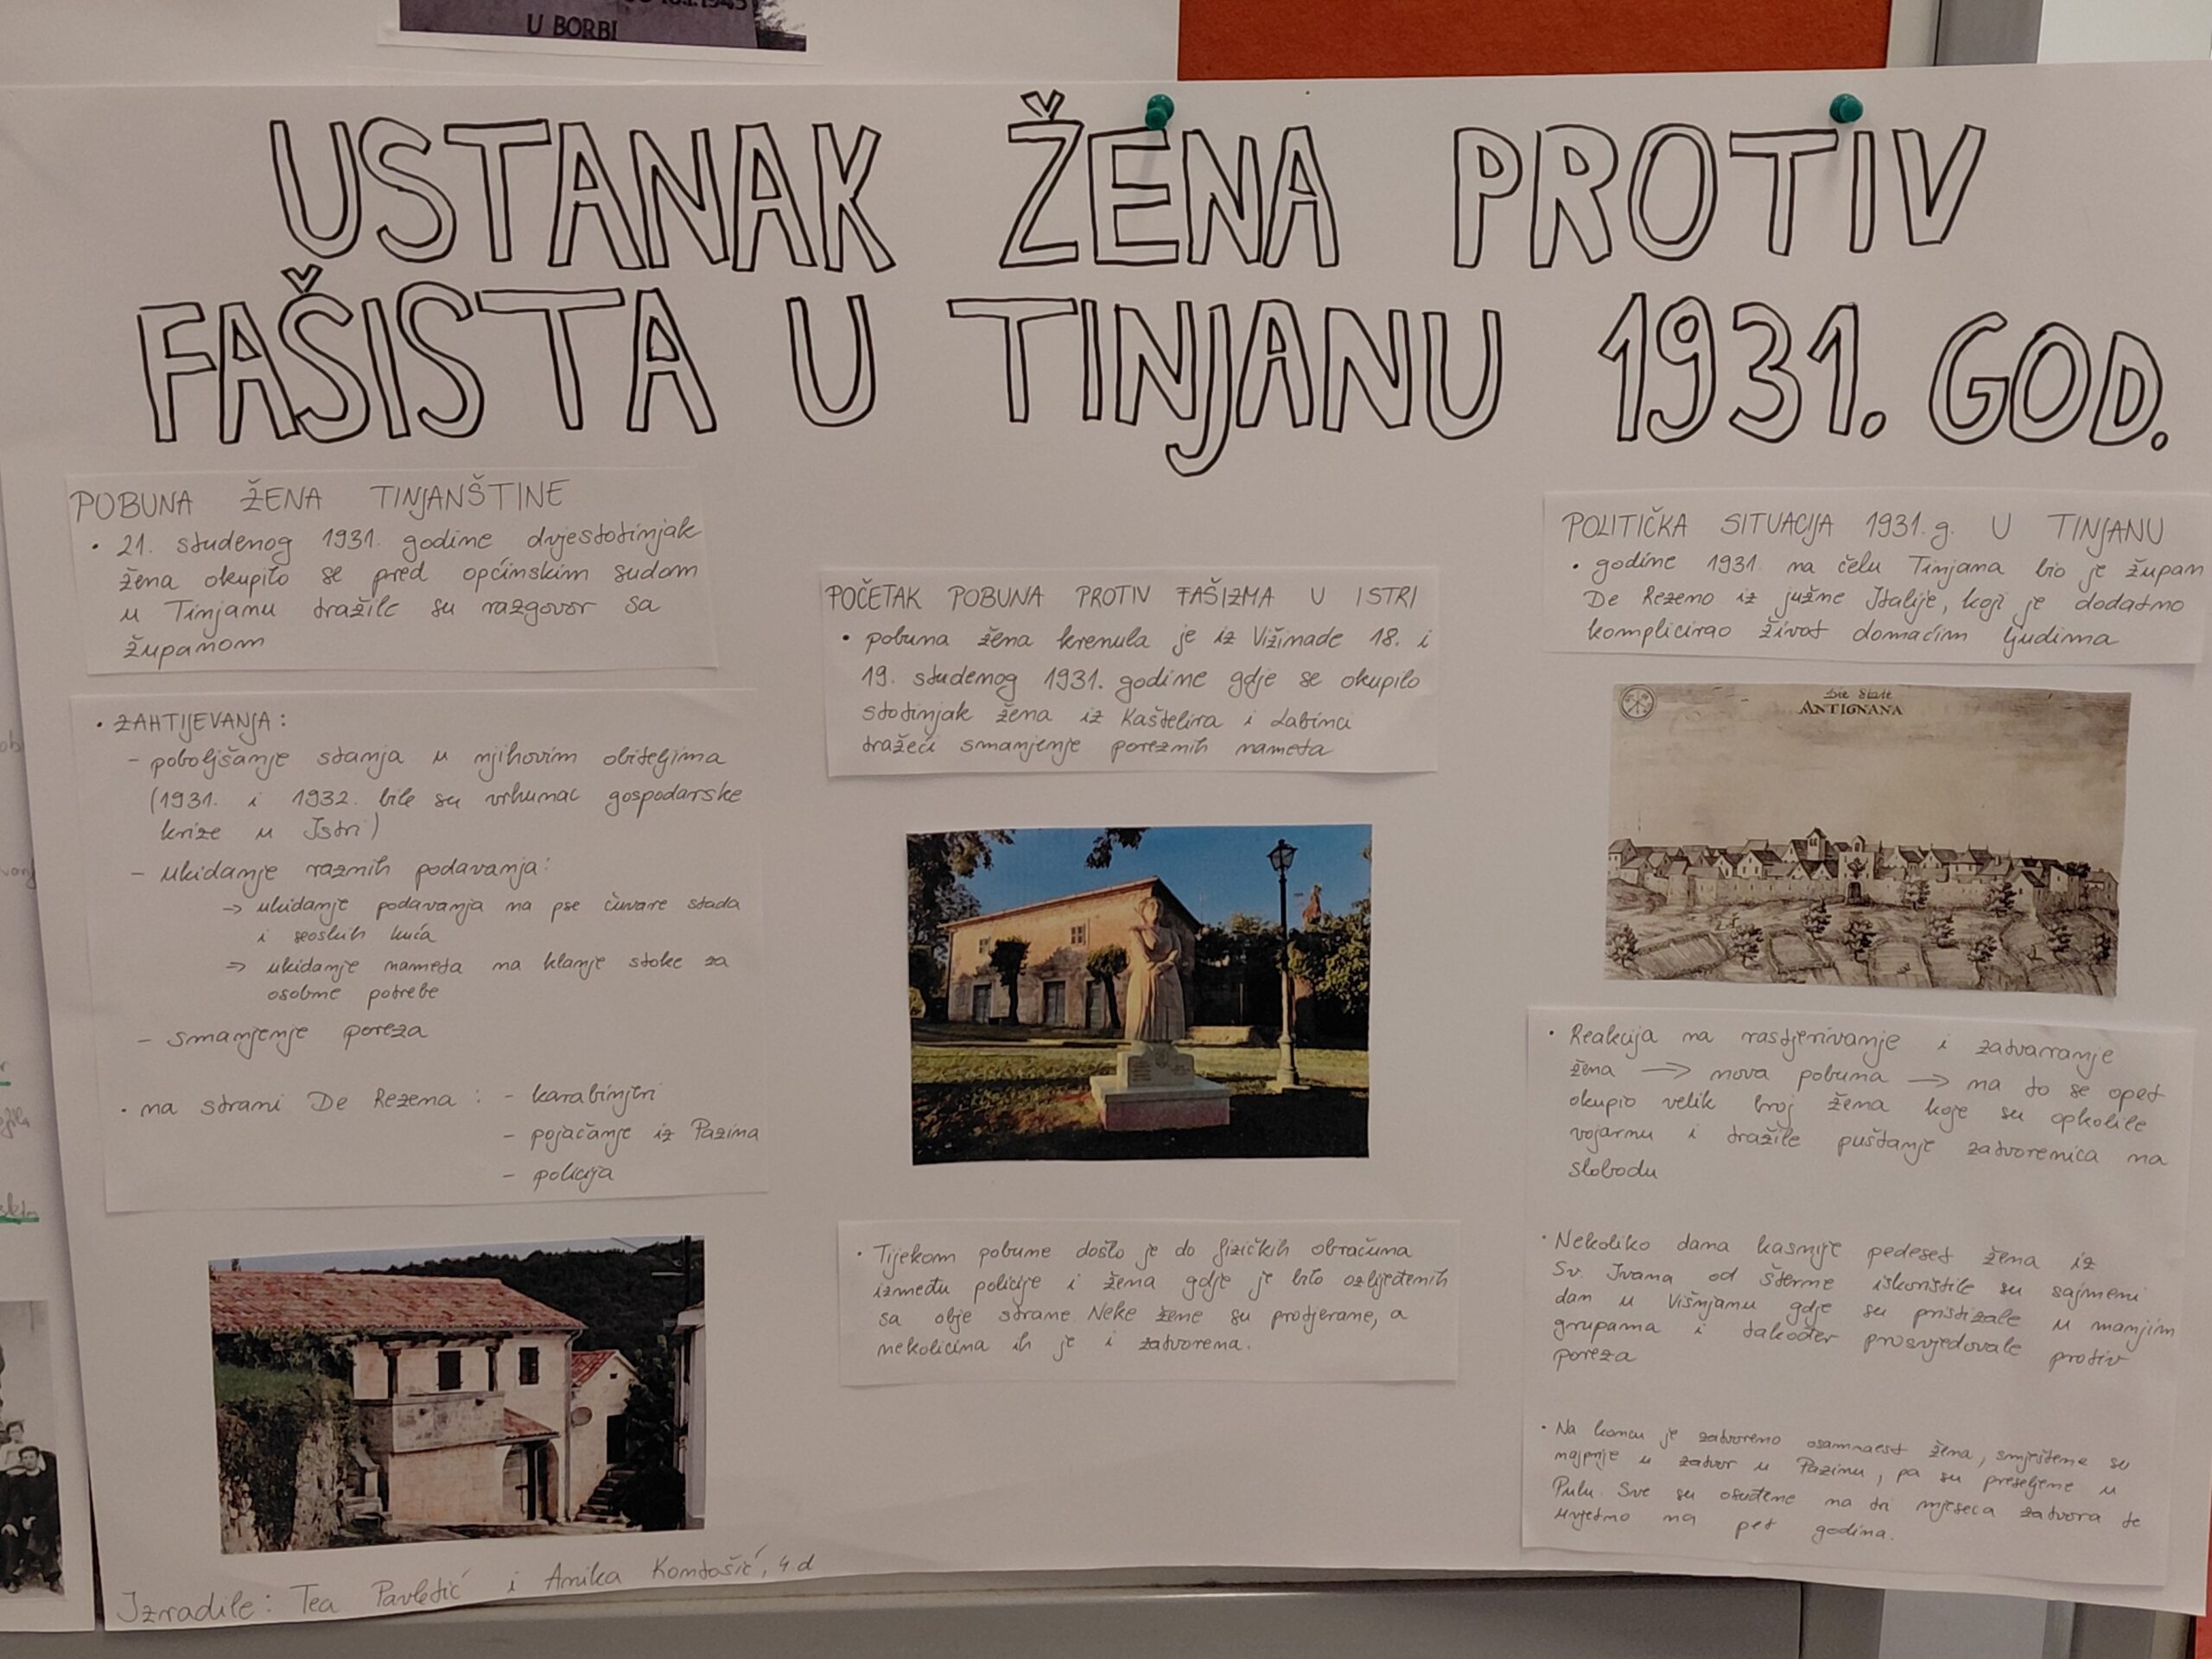 U BORBI
USTANAK ŽENA PROTIV
FAŠISTA U TINJANU 1931. GOD.
POBUNA ŽENA TINJANŠTINE
• 21. studenog 1931. godine dvjestotinjak
žena okupilo se pred općinskim sudom
u Tinjanu tražile su razgovor sa
županom
• ZAHTIJEVANJA:
- poboljšanje stanja u njihovim obiteljima
(1931. i 1932. bile su vrhunac gospodarske
krize u Istri)
- ukidanje raznih podavanja:
→ ukidanje podavanja na pse čuvare stada
i seoskih kuća
→ ukidanje nameta na klanje stoke za
osobne potrebe
- smanjenje poreza
• na strani De Rezema: - karabinjeri
- pojačanje iz Pazina
- policija
Izradile: Tea Pavletić i Anika Kontošić, 4.d
POČETAK POBUNA PROTIV FAŠIZMA U ISTRI
• pobuna žena krenula je iz Vižinade 18. i
19. studenog 1931. godine gdje se okupilo
stotinjak žena iz Kaštelira i Labinci
tražeći smanjenje poreznih nameta
• Tijekom pobune došlo je do fizičkih obračuna
između policije i žena gdje je bilo ozlijeđenih
sa obje strane. Neke žene su protjerane, a
nekolicina ih je i zatvorena.
POLITIČKA SITUACIJA 1931.g. U TINJANU
• godine 1931. na čelu Tinjana bio je župan
De Rezemo iz južne Italije, koji je dodatno
komplicirao život domaćim ljudima
Die State
ANTIGNANA
• Reakcija na rastjerivanje i zatvaranje
žena → nova pobuna → na to se opet
okupio velik broj žena koje su opkolile
vojarnu i tražile puštanje zatvorenica na
slobodu
• Nekoliko dana kasnije pedeset žena iz
Sv. Ivana od Šterne iskoristile su sajmeni
dan u Višnjanu gdje su pristizale u manjim
grupama i također prosvjedovale protiv
poreza
• Na koncu je zatvoreno osamnaest žena, smještene su
najprije u zatvor u Pazinu, pa su preseljene u
Pulu. Sve su osuđene na tri mjeseca zatvora te
uvjetno na pet godina.